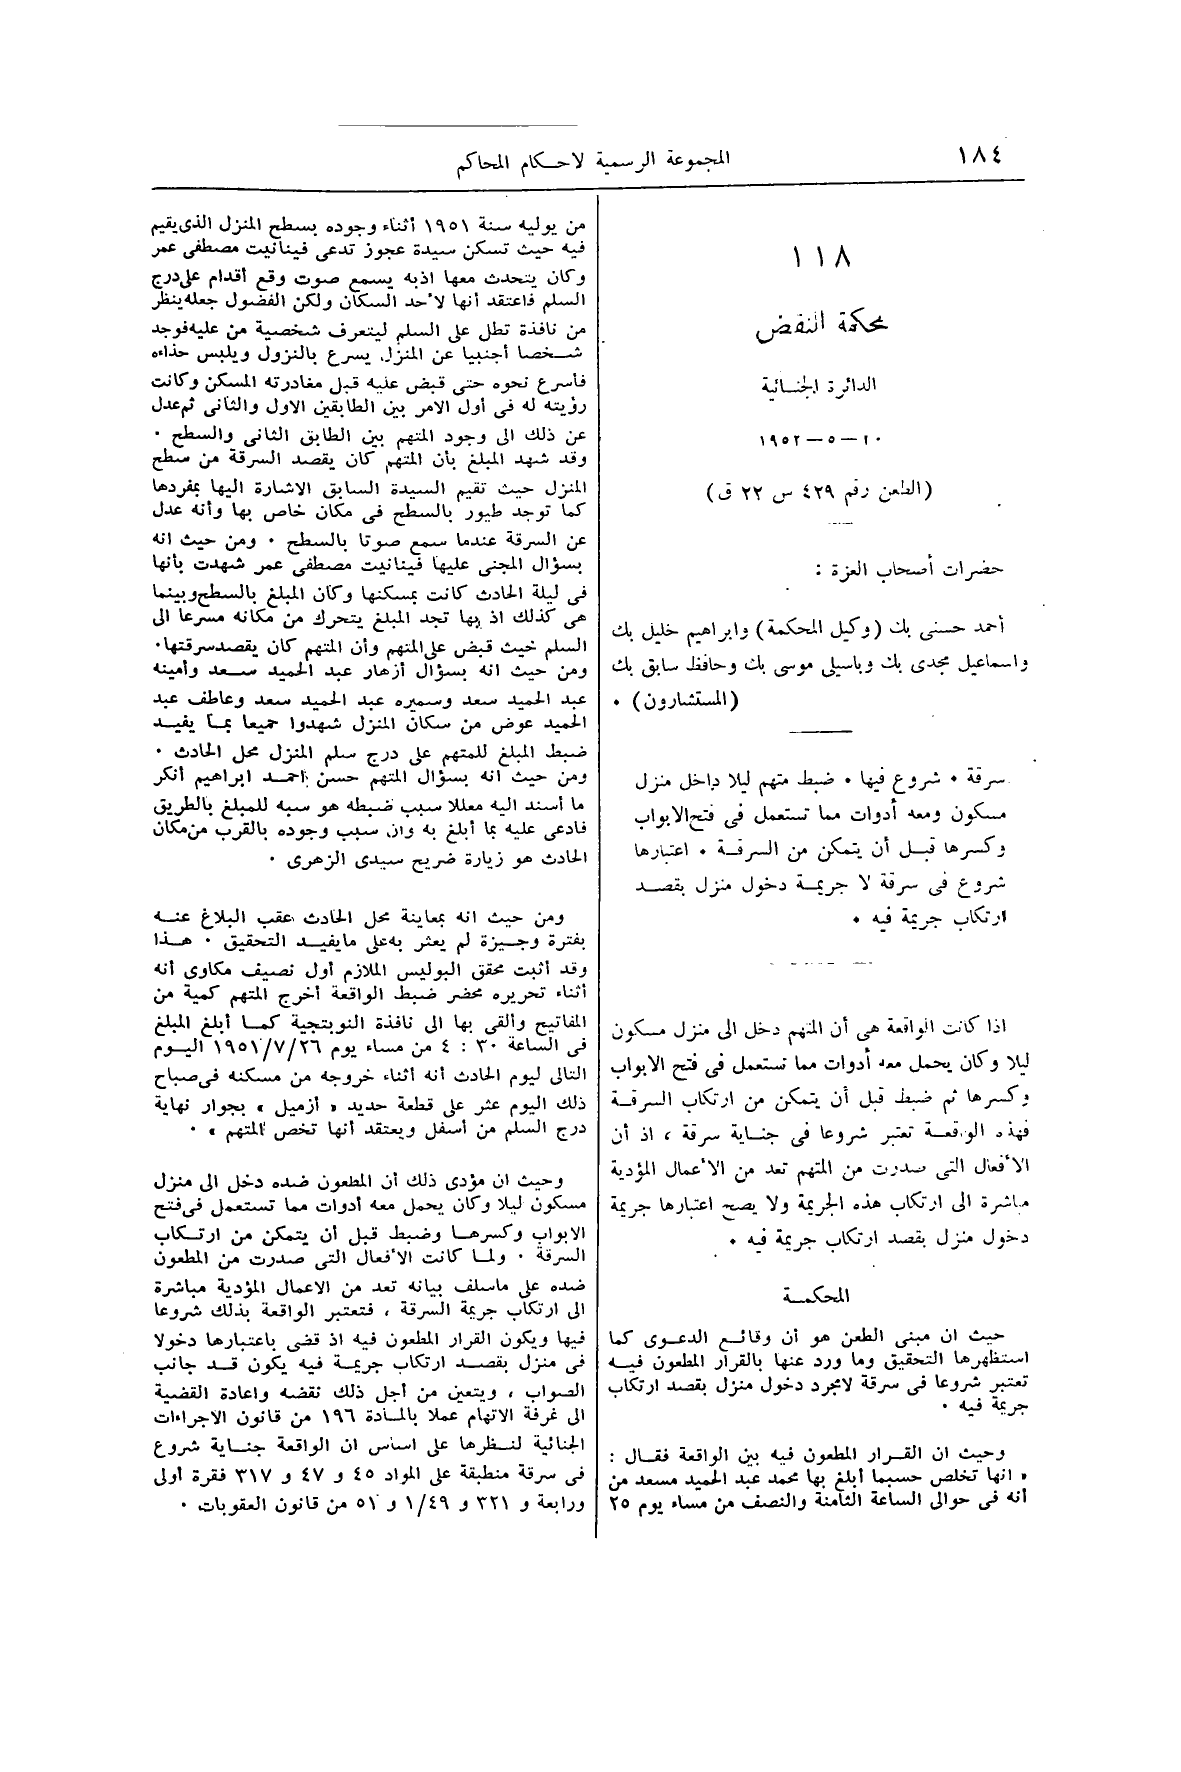 ١٨٤
المجموعة الرسمية لاحكام المحاكم
١١٨
محكمة النقض
الدائرة الجنائية
٢٠-٥-١٩٥٢
(الطعن رقم ٤٢٩ س ٢٢ ق)
حضرات أصحاب العزة :
أحمد حسنى بك (وكيل المحكمة) وابراهيم خليل بك
واسماعيل مجدى بك وباسيلى موسى بك وحافظ سابق بك
(المستشارون) ٠
سرقة ٠ شروع فيها ٠ ضبط متهم ليلا داخل منزل
مسكون ومعه أدوات مما تستعمل فى فتح الابواب
وكسرها قبل أن يتمكن من السرقة ٠ اعتبارها
شروع فى سرقة لا جريمة دخول منزل بقصد
ارتكاب جريمة فيه ٠
اذا كانت الواقعة هى أن المتهم دخل الى منزل مسكون
ليلا وكان يحمل معه أدوات مما تستعمل فى فتح الابواب
وكسرها ثم ضبط قبل أن يتمكن من ارتكاب السرقة
فهذه الواقعة تعتبر شروعا فى جناية سرقة ، اذ أن
الأفعال التى صدرت من المتهم تعد من الأعمال المؤدية
مباشرة الى ارتكاب هذه الجريمة ولا يصح اعتبارها جريمة
دخول منزل بقصد ارتكاب جريمة فيه ٠
المحكمة
حيث ان مبنى الطعن هو أن وقائع الدعوى كما
استظهرها التحقيق وما ورد عنها بالقرار المطعون فيه
تعتبر شروعا فى سرقة لامجرد دخول منزل بقصد ارتكاب
جريمة فيه ٠
وحيث ان القرار المطعون فيه بين الواقعة فقال :
« انها تخلص حسبما أبلغ بها محمد عبد الحميد مسعد من
أنه فى حوالى الساعة الثامنة والنصف من مساء يوم ٢٥
من يوليه سنة ١٩٥١ أثناء وجوده بسطح المنزل الذى يقيم
فيه حيث تسكن سيدة عجوز تدعى فينانيت مصطفى عمر
وكان يتحدث معها اذ به يسمع صوت وقع أقدام على درج
السلم فاعتقد أنها لأحد السكان ولكن الفضول جعله ينظر
من نافذة تطل على السلم ليتعرف شخصية من عليه فوجد
شخصا أجنبيا عن المنزل يسرع بالنزول ويلبس حذاءه
فأسرع نحوه حتى قبض عليه قبل مغادرته المسكن وكانت
رؤيته له فى أول الامر بين الطابقين الاول والثانى ثم عدل
عن ذلك الى وجود المتهم بين الطابق الثانى والسطح ٠
وقد شهد المبلغ بأن المتهم كان يقصد السرقة من سطح
المنزل حيث تقيم السيدة السابق الاشارة اليها بمفردها
كما توجد طيور بالسطح فى مكان خاص بها وأنه عدل
عن السرقة عندما سمع صوتا بالسطح ٠ ومن حيث انه
بسؤال المجنى عليها فينانيت مصطفى عمر شهدت بأنها
فى ليلة الحادث كانت بمسكنها وكان المبلغ بالسطح وبينما
هى كذلك اذ بها تجد المبلغ يتحرك من مكانه مسرعا الى
السلم حيث قبض على المتهم وأن المتهم كان يقصد سرقتها٠
ومن حيث انه بسؤال أزهار عبد الحميد سعد وأمينه
عبد الحميد سعد وسميره عبد الحميد سعد وعاطف عبد
الحميد عوض من سكان المنزل شهدوا جميعا بما يفيد
ضبط المبلغ للمتهم على درج سلم المنزل محل الحادث ٠
ومن حيث انه بسؤال المتهم حسن احمد ابراهيم أنكر
ما أسند اليه معللا سبب ضبطه هو سبه للمبلغ بالطريق
فادعى عليه بما أبلغ به وان سبب وجوده بالقرب من مكان
الحادث هو زيارة ضريح سيدى الزهرى ٠
ومن حيث انه بمعاينة محل الحادث عقب البلاغ عنه
بفترة وجيزة لم يعثر به على مايفيد التحقيق ٠ هذا
وقد أثبت محقق البوليس الملازم أول نصيف مكاوى أنه
أثناء تحريره محضر ضبط الواقعة أخرج المتهم كمية من
المفاتيح وألقى بها الى نافذة النوبتجية كما أبلغ المبلغ
فى الساعة ٣٠ : ٤ من مساء يوم ١٩٥١/٧/٢٦ اليوم
التالى ليوم الحادث أنه أثناء خروجه من مسكنه فى صباح
ذلك اليوم عثر على قطعة حديد « أزميل » بجوار نهاية
درج السلم من أسفل ويعتقد أنها تخص المتهم » ٠
وحيث ان مؤدى ذلك أن المطعون ضده دخل الى منزل
مسكون ليلا وكان يحمل معه أدوات مما تستعمل فى فتح
الابواب وكسرها وضبط قبل أن يتمكن من ارتكاب
السرقة ٠ ولما كانت الأفعال التى صدرت من المطعون
ضده على ماسلف بيانه تعد من الاعمال المؤدية مباشرة
الى ارتكاب جريمة السرقة ، فتعتبر الواقعة بذلك شروعا
فيها ويكون القرار المطعون فيه اذ قضى باعتبارها دخولا
فى منزل بقصد ارتكاب جريمة فيه يكون قد جانب
الصواب ، ويتعين من أجل ذلك نقضه واعادة القضية
الى غرفة الاتهام عملا بالمادة ١٩٦ من قانون الاجراءات
الجنائية لنظرها على اساس ان الواقعة جناية شروع
فى سرقة منطبقة على المواد ٤٥ و ٤٧ و ٣١٧ فقرة أولى
ورابعة و ٣٢١ و ١/٤٩ و ٥١ من قانون العقوبات ٠